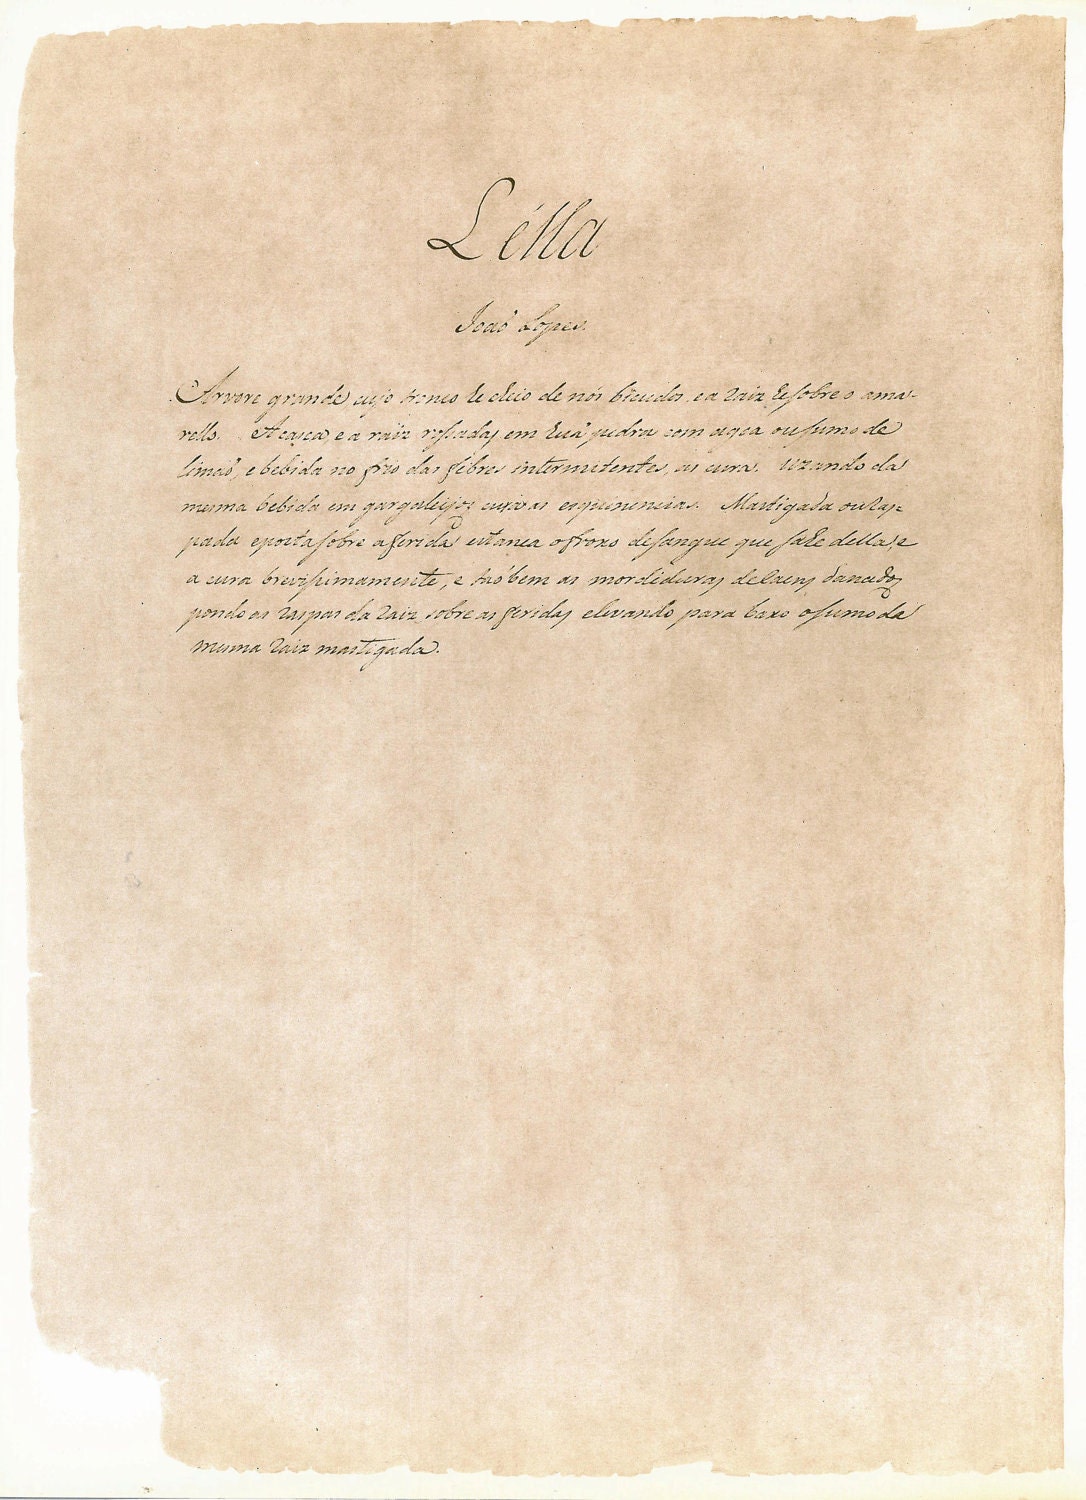 Lélla
Joaõ Lopes.
Arvore grande cujo tronco he cheio de nós bicudos, e a raiz he sobre o ama-
rello. A casca, e a raiz rossadas em huã pedra com agoa ou sumo de
limaõ, e bebida no frio das febres intermitentes, as cura. Uzando da
mesma bebida em gargalejos cura as esquinencias. Mastigada ou ras-
pada e posta sobre a ferida estanca o froxo de sangue que sahe della, e
a cura brevissimamente, e taõbem as mordeduras de caens danados
pondo as raspas da raiz sobre as feridas, e levando para baxo o sumo da
mesma raiz mastigada.